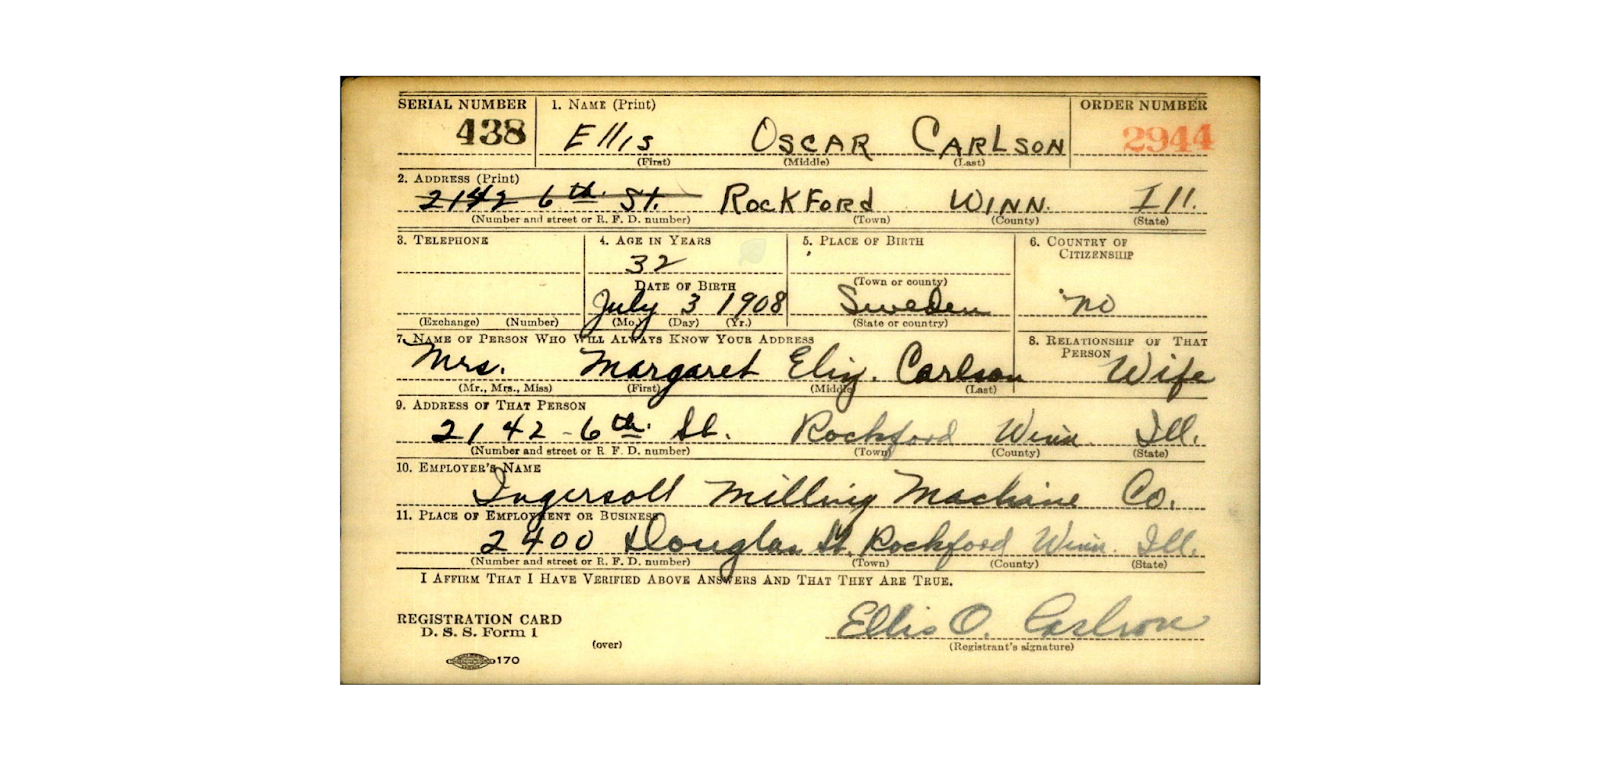 SERIAL NUMBER 1. NAME (Print) ORDER NUMBER
438 Ellis OSCAR CARLSON 2944
(First) (Middle) (Last)
2. ADDRESS (Print)
2142 6th. St. ROCKFORd WINN. Ill.
(Number and street or R. F. D. number) (Town) (County) (State)
3. TELEPHONE 4. AGE IN YEARS 5. PLACE OF BIRTH 6. COUNTRY OF
CITIZENSHIP
32
DATE OF BIRTH (Town or county)
July 3 1908 Sweden no
(Exchange) (Number) (Mo.) (Day) (Yr.) (State or country)
7. NAME OF PERSON WHO WILL ALWAYS KNOW YOUR ADDRESS 8. RELATIONSHIP OF THAT
PERSON
Mrs. Margaret Eliz. Carlson Wife
(Mr., Mrs., Miss) (First) (Middle) (Last)
9. ADDRESS OF THAT PERSON
2142 - 6th. St. Rockford Winn. Ill.
(Number and street or R. F. D. number) (Town) (County) (State)
10. EMPLOYER'S NAME
Ingersoll Milling Machine Co.
11. PLACE OF EMPLOYMENT OR BUSINESS
2400 Douglas St. Rockford Winn. Ill.
(Number and street or R. F. D. number) (Town) (County) (State)
I AFFIRM THAT I HAVE VERIFIED ABOVE ANSWERS AND THAT THEY ARE TRUE.
REGISTRATION CARD Ellis O. Carlson
D. S. S. Form 1
(over) (Registrant's signature)
170